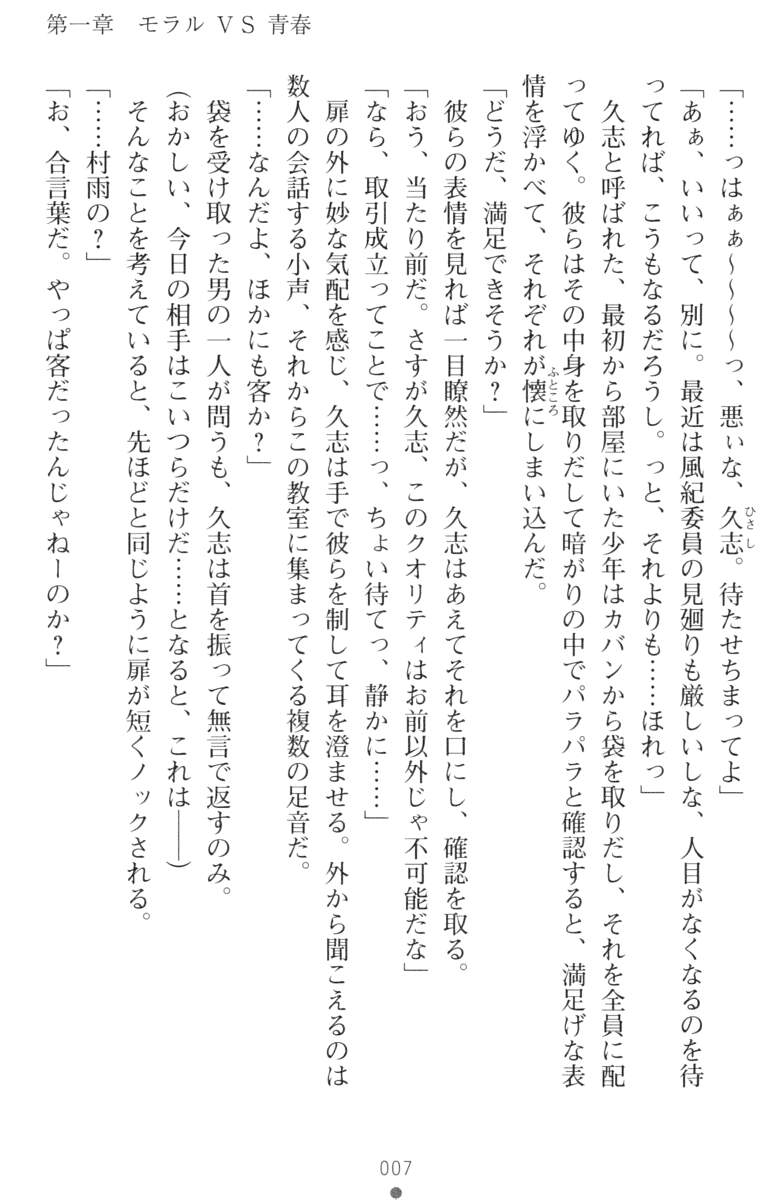 第一章　モラル VS 青春
「……っはぁぁ～～～～っ、悪ぃな、久志。待たせちまってよ」
「あぁ、いいって、別に。最近は風紀委員の見廻りも厳しいしな、人目がなくなるのを待
ってれば、こうもなるだろうし。っと、それよりも……ほれっ」
　久志と呼ばれた、最初から部屋にいた少年はカバンから袋を取りだし、それを全員に配
ってゆく。彼らはその中身を取りだして暗がりの中でパラパラと確認すると、満足げな表
情を浮かべて、それぞれが懐にしまい込んだ。
「どうだ、満足できそうか？」
　彼らの表情を見れば一目瞭然だが、久志はあえてそれを口にし、確認を取る。
「おう、当たり前だ。さすが久志、このクオリティはお前以外じゃ不可能だな」
「なら、取引成立ってことで……っ、ちょい待てっ、静かに……」
　扉の外に妙な気配を感じ、久志は手で彼らを制して耳を澄ませる。外から聞こえるのは
数人の会話する小声、それからこの教室に集まってくる複数の足音だ。
「……なんだよ、ほかにも客か？」
　袋を受け取った男の一人が問うも、久志は首を振って無言で返すのみ。
（おかしい、今日の相手はこいつらだけだ……となると、これは――）
　そんなことを考えていると、先ほどと同じように扉が短くノックされる。
「……村雨の？」
「お、合言葉だ。やっぱ客だったんじゃねーのか？」
ひさし
ふところ
007